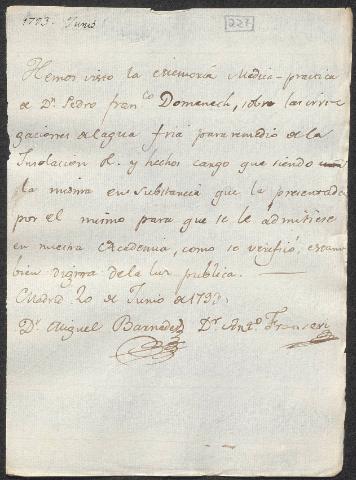 1793. Junio
227
Hemos visto la Memoria Medico-practica
de Dn. Pedro Franco. Domenech, sobre las irri-
gaciones de lagua fria para remedio de la
Insolacion &. y hechos cargo que siendo
la misma en substancia que la presentada
por el mismo para que se le admitiese
en nuestra Academia, como se verificó, es tam
bien digna de la luz publica.
Madrid 20 de Junio de 1793.
Dr. Miguel Barnades Dr. Anto. Franseri